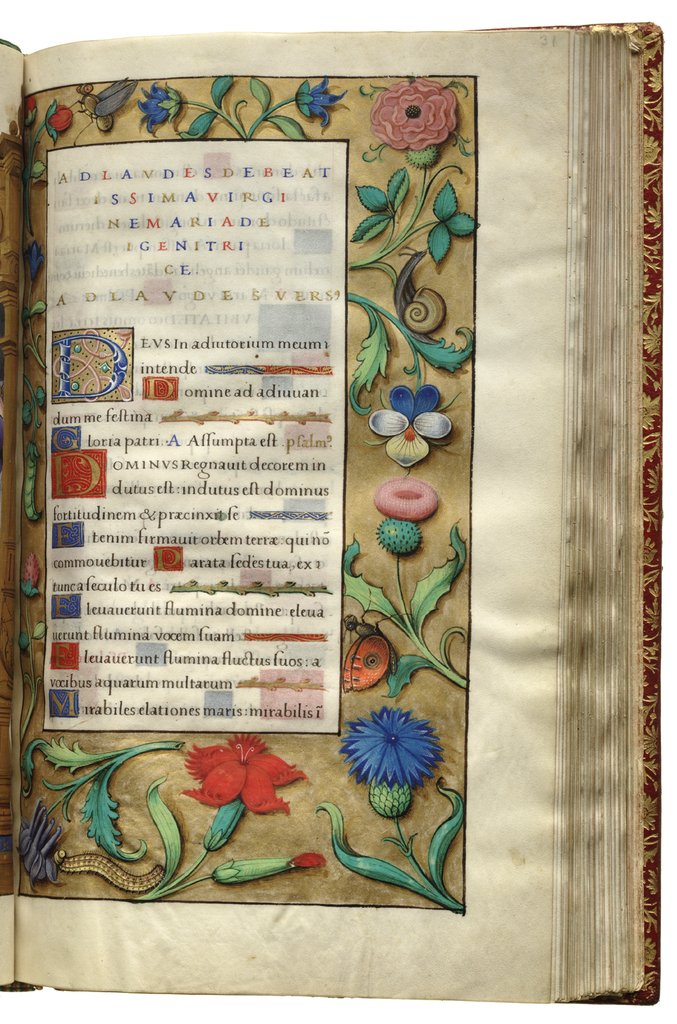 31
AD LAVDES DE BEAT
ISSIMA VIRGI
NE MARIA DE
I GENITRI
CE.
AD LAVDES VERSꝰ
DEVS In adiutorium meum ı
intende
Domine ad adiuuan
dum me festina
Gloria patri. A Assumpta est. psalmꝰ.
DOMINVS Regnauit decorem in
dutus est: indutus est dominus
fortitudinem & præcinxit se
Etenim firmauit orbem terræ. qui nō
commouebitur Parata sedes tua, ex ı
tunc a seculo tu es
Eleuauerunt flumina domine. eleua
uerunt flumina vocem suam
Eleuauerunt flumina fluctus suos: a
vocibus aquarum multarum
Mirabiles elationes maris: mirabilis ī